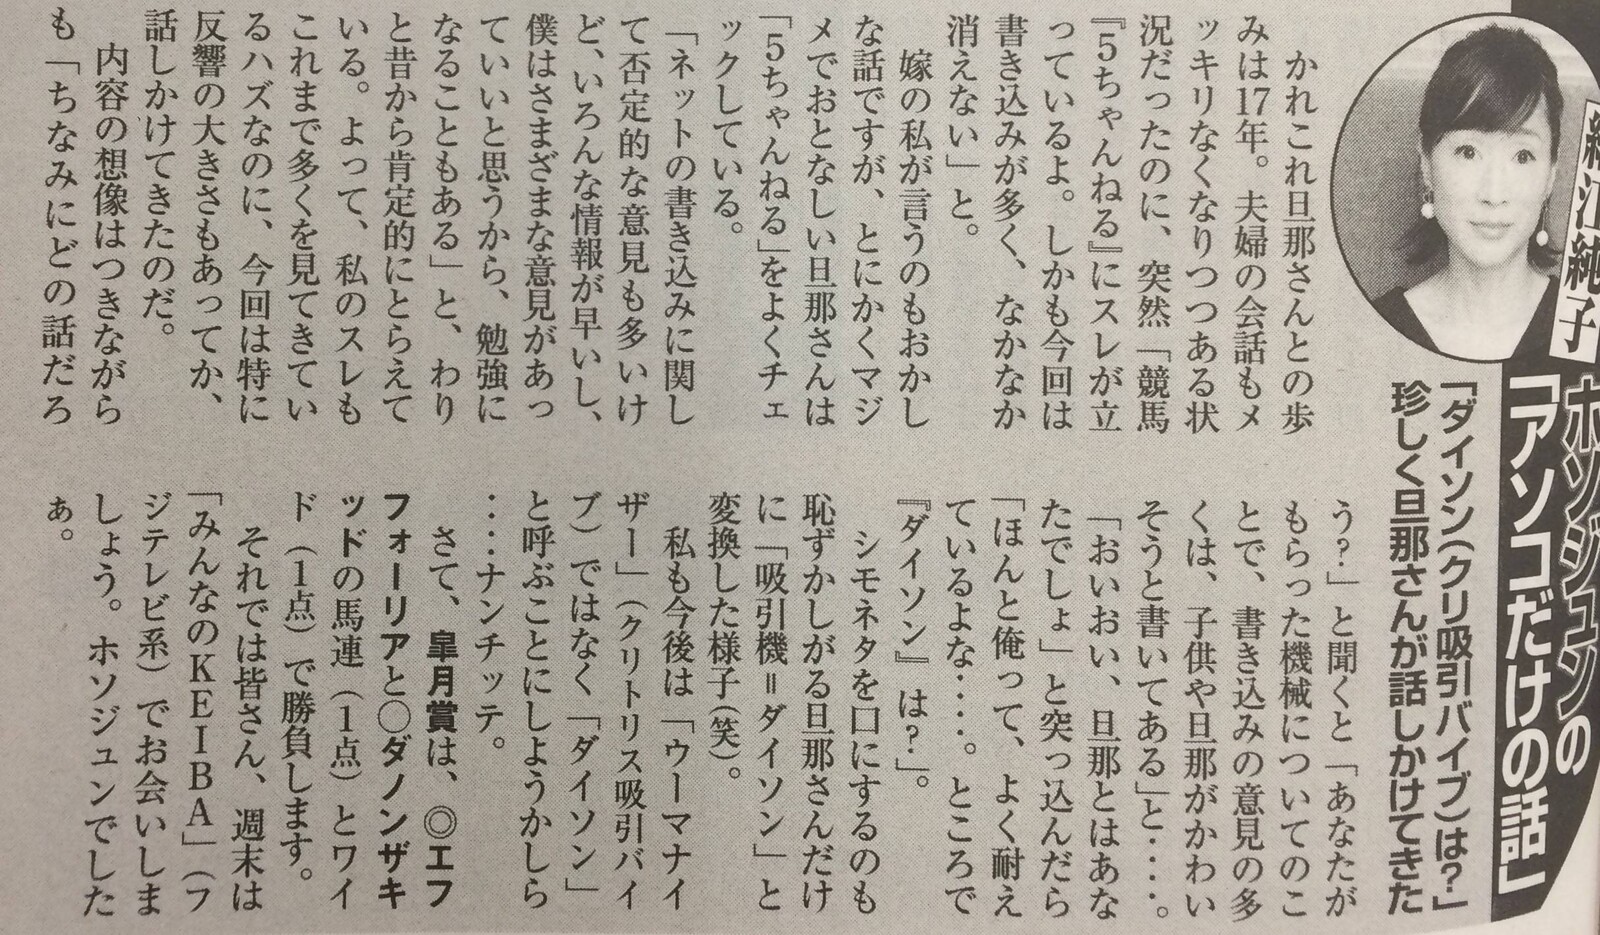 細江純子
ホソジュンの
「アソコだけの話」
「ダイソン(クリ吸引バイブ)は?」
珍しく旦那さんが話しかけてきた
かれこれ旦那さんとの歩
みは17年。夫婦の会話もメ
ッキリなくなりつつある状
況だったのに、突然「競馬
『5ちゃんねる』にスレが立
っているよ。しかも今回は
書き込みが多く、なかなか
消えない」と。
嫁の私が言うのもおかし
な話ですが、とにかくマジ
メでおとなしい旦那さんは
「5ちゃんねる」をよくチェ
ックしている。
「ネットの書き込みに関し
て否定的な意見も多いけ
ど、いろんな情報が早いし、
僕はさまざまな意見があっ
ていいと思うから、勉強に
なることもある」と、わり
と昔から肯定的にとらえて
いる。よって、私のスレも
これまで多くを見てきてい
るハズなのに、今回は特に
反響の大きさもあってか、
話しかけてきたのだ。
内容の想像はつきながら
も「ちなみにどの話だろ
う?」と聞くと「あなたが
もらった機械についてのこ
とで、書き込みの意見の多
くは、子供や旦那がかわい
そうと書いてある」と‥‥。
「おいおい、旦那とはあな
たでしょ」と突っ込んだら
「ほんと俺って、よく耐え
ているよな‥‥。ところで
『ダイソン』は?」。
シモネタを口にするのも
恥ずかしがる旦那さんだけ
に「吸引機=ダイソン」と
変換した様子(笑)。
私も今後は「ウーマナイ
ザー」(クリトリス吸引バイ
ブ)ではなく「ダイソン」
と呼ぶことにしようかしら
‥‥ナンチッテ。
さて、皐月賞は、◎エフ
フォーリアと○ダノンザキ
ッドの馬連(1点)とワイ
ド(1点)で勝負します。
それでは皆さん、週末は
「みんなのKEIBA」(フ
ジテレビ系)でお会いしま
しょう。ホソジュンでした
ぁ。